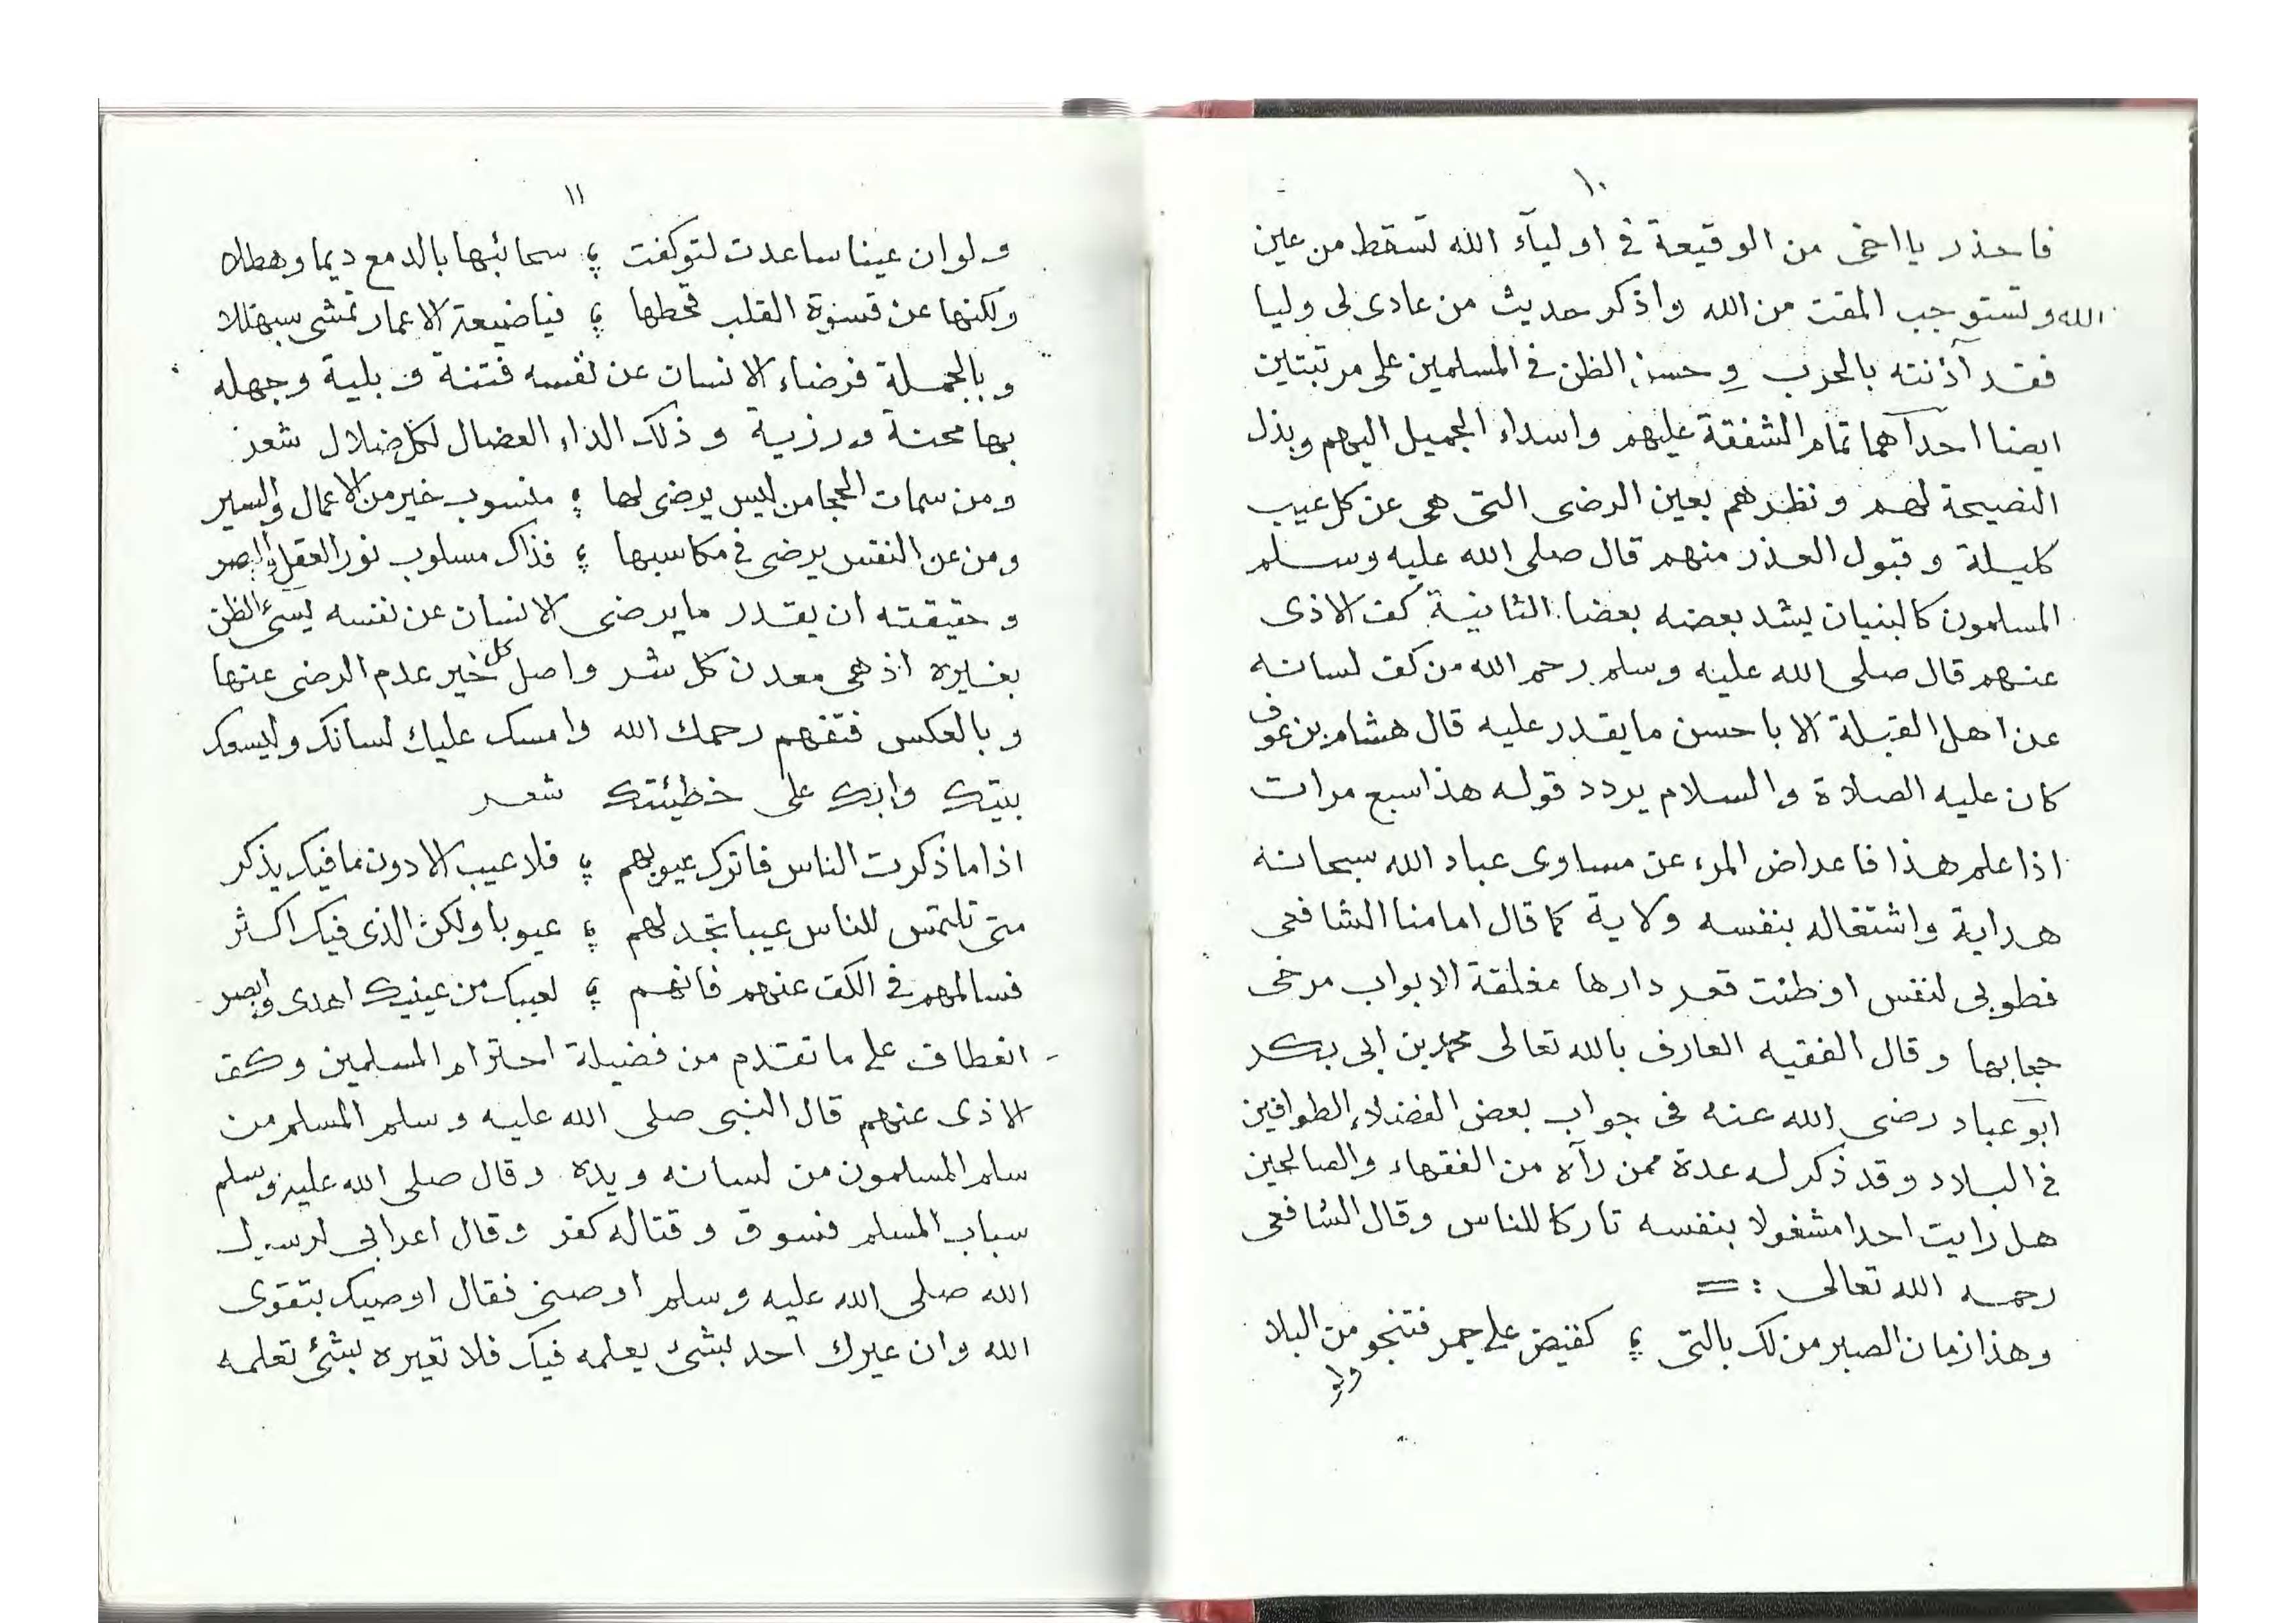 ١٠
فاحذر يا اخى من الوقيعة فى اوليآء الله تسقط من عين
الله وتستوجب المقت من الله واذكر حديث من عادى لى وليا
فقد آذنته بالحرب وحسن الظن فى المسلمين على مرتبتين
ايضا احداهما تمام الشفقة عليهم واسداء الجميل اليهم وبذل
النصيحة لهم ونظرهم بعين الرضى التى هى عن كل عيب
كليلة وقبول العذر منهم قال صلى الله عليه وسلم
المسلمون كالبنيان يشد بعضه بعضا الثانية كف الاذى
عنهم قال صلى الله عليه وسلم رحم الله من كف لسانه
عن اهل القبلة الا باحسن ما يقدر عليه قال هشام بن عوف
كان عليه الصلاة والسلام يردد قوله هذا سبع مرات
اذا علم هذا فاعراض المرء عن مساوى عباد الله سبحانه
هداية واشتغاله بنفسه ولاية كما قال امامنا الشافعى
فطوبى لنفس اوطئت قعر دارها مغلقة الابواب مرخى
حجابها وقال الفقيه العارف بالله تعالى محمد بن ابى بكر
ابو عباد رضى الله عنه فى جواب بعض الفضلاء الطوافين
فى البلاد وقد ذكر له عدة ممن رآه من الفقهاء والصالحين
هل رايت احدا مشغولا بنفسه تاركا للناس وقال الشافعى
رحمه الله تعالى :=
وهذا زمان الصبر من لك بالتى ؛ كقبض على جمر فتنجو من البلا
ولو
١١
ولو ان عينا ساعدت لتوكفت ؛ سحائبها بالدمع ديما وهطلا
ولكنها عن قسوة القلب قحطها ؛ فيا ضيعة الاعمار تمشى سبهللا
وبالجملة فرضاء الانسان عن نفسه فتنة وبلية وجهله
بها محنة ورزية وذلك الداء العضال لكل ضلال شعر
ومن سمات الحجا من ليس يرضى لها ؛ منسوب خير من الاعمال والسير
ومن عن النفس يرضى فى مكاسبها ؛ فذاك مسلوب نور العقل والبصر
وحقيقته ان يقدر ما يرضى الانسان عن نفسه يسىء الظن
بغيره اذ هى معدن كل شر واصل كل خير عدم الرضى عنها
وبالعكس فتفهم رحمك الله وامسك عليك لسانك وليسعك
بيتك وابك على خطيئتك شعر
اذا ما ذكرت الناس فاترك عيوبهم ؛ فلا عيب الا دون ما فيك يذكر
متى تلتمس للناس عيبا تجد لهم ؛ عيوبا ولكن الذى فيك اكثر
فسالمهم فى الكف عنهم فانهم ؛ لعيبك من عينيك اهدى وابصر
انعطاف على ما تقدم من فضيلة احترام المسلمين وكف
الاذى عنهم قال النبى صلى الله عليه وسلم المسلم من
سلم المسلمون من لسانه ويده وقال صلى الله عليه وسلم
سباب المسلم فسوق وقتاله كفر وقال اعرابى لرسول
الله صلى الله عليه وسلم اوصنى فقال اوصيك بتقوى
الله وان عيرك احد بشئ يعلمه فيك فلا تعيره بشئ تعلمه